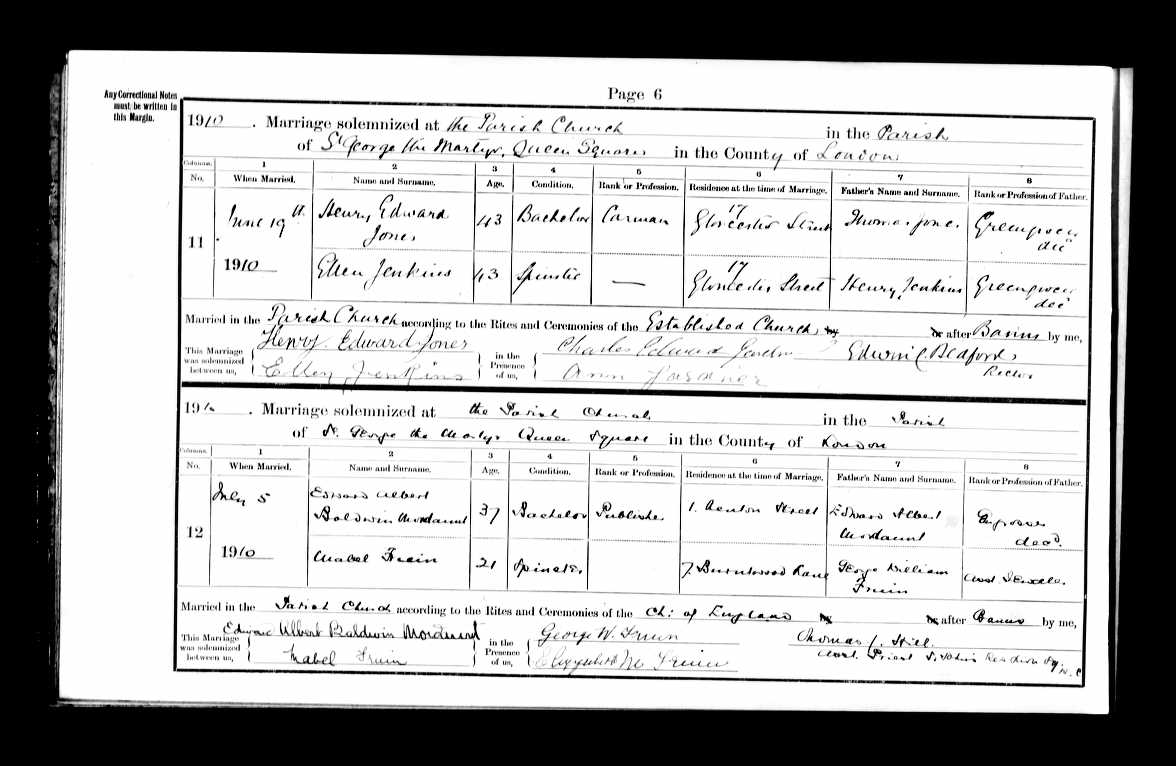 Any Correctional Notes
must be written in
this Margin.
Page 6
1910. Marriage solemnized at the Parish Church in the Parish
of St George the Martyr, Queen Square in the County of London
Columns. 1 2 3 4 5 6 7 8
No. When Married. Name and Surname. Age. Condition. Rank or Profession. Residence at the time of Marriage. Father's Name and Surname. Rank or Profession of Father.
11 June 19th 1910
Henry Edward Jones 43 Bachelor Carman 17 Gloucester Street Thomas Jones Greengrocer decd
Ellen Jenkins 43 Spinster — 17 Gloucester Street Henry Jenkins Greengrocer decd
Married in the Parish Church according to the Rites and Ceremonies of the Established Church, by or after Banns by me,
This Marriage was solemnized between us, Henry Edward Jones
Ellen Jenkins
in the Presence of us, Charles Edward
Ann Gardner
Edwin C Bedford
Rector
1910. Marriage solemnized at the Parish Church in the Parish
of St. George the Martyr Queen Square in the County of London
Columns. 1 2 3 4 5 6 7 8
No. When Married. Name and Surname. Age. Condition. Rank or Profession. Residence at the time of Marriage. Father's Name and Surname. Rank or Profession of Father.
12 July 5 1910
Edward Albert Baldwin Mordaunt 37 Bachelor Publisher 1. Street Edward Albert Mordaunt decd.
Mabel Fruin 21 Spinster 7. Burntwood Lane George William Fruin
Married in the Parish Church according to the Rites and Ceremonies of the Ch: of England by or after Banns by me,
This Marriage was solemnized between us, Edward Albert Baldwin Mordaunt
Mabel Fruin
in the Presence of us, George W. Fruin
Elizabeth M Fruin
Thomas Hill
Asst. Priest S. John's Red Lion Sq. W.C